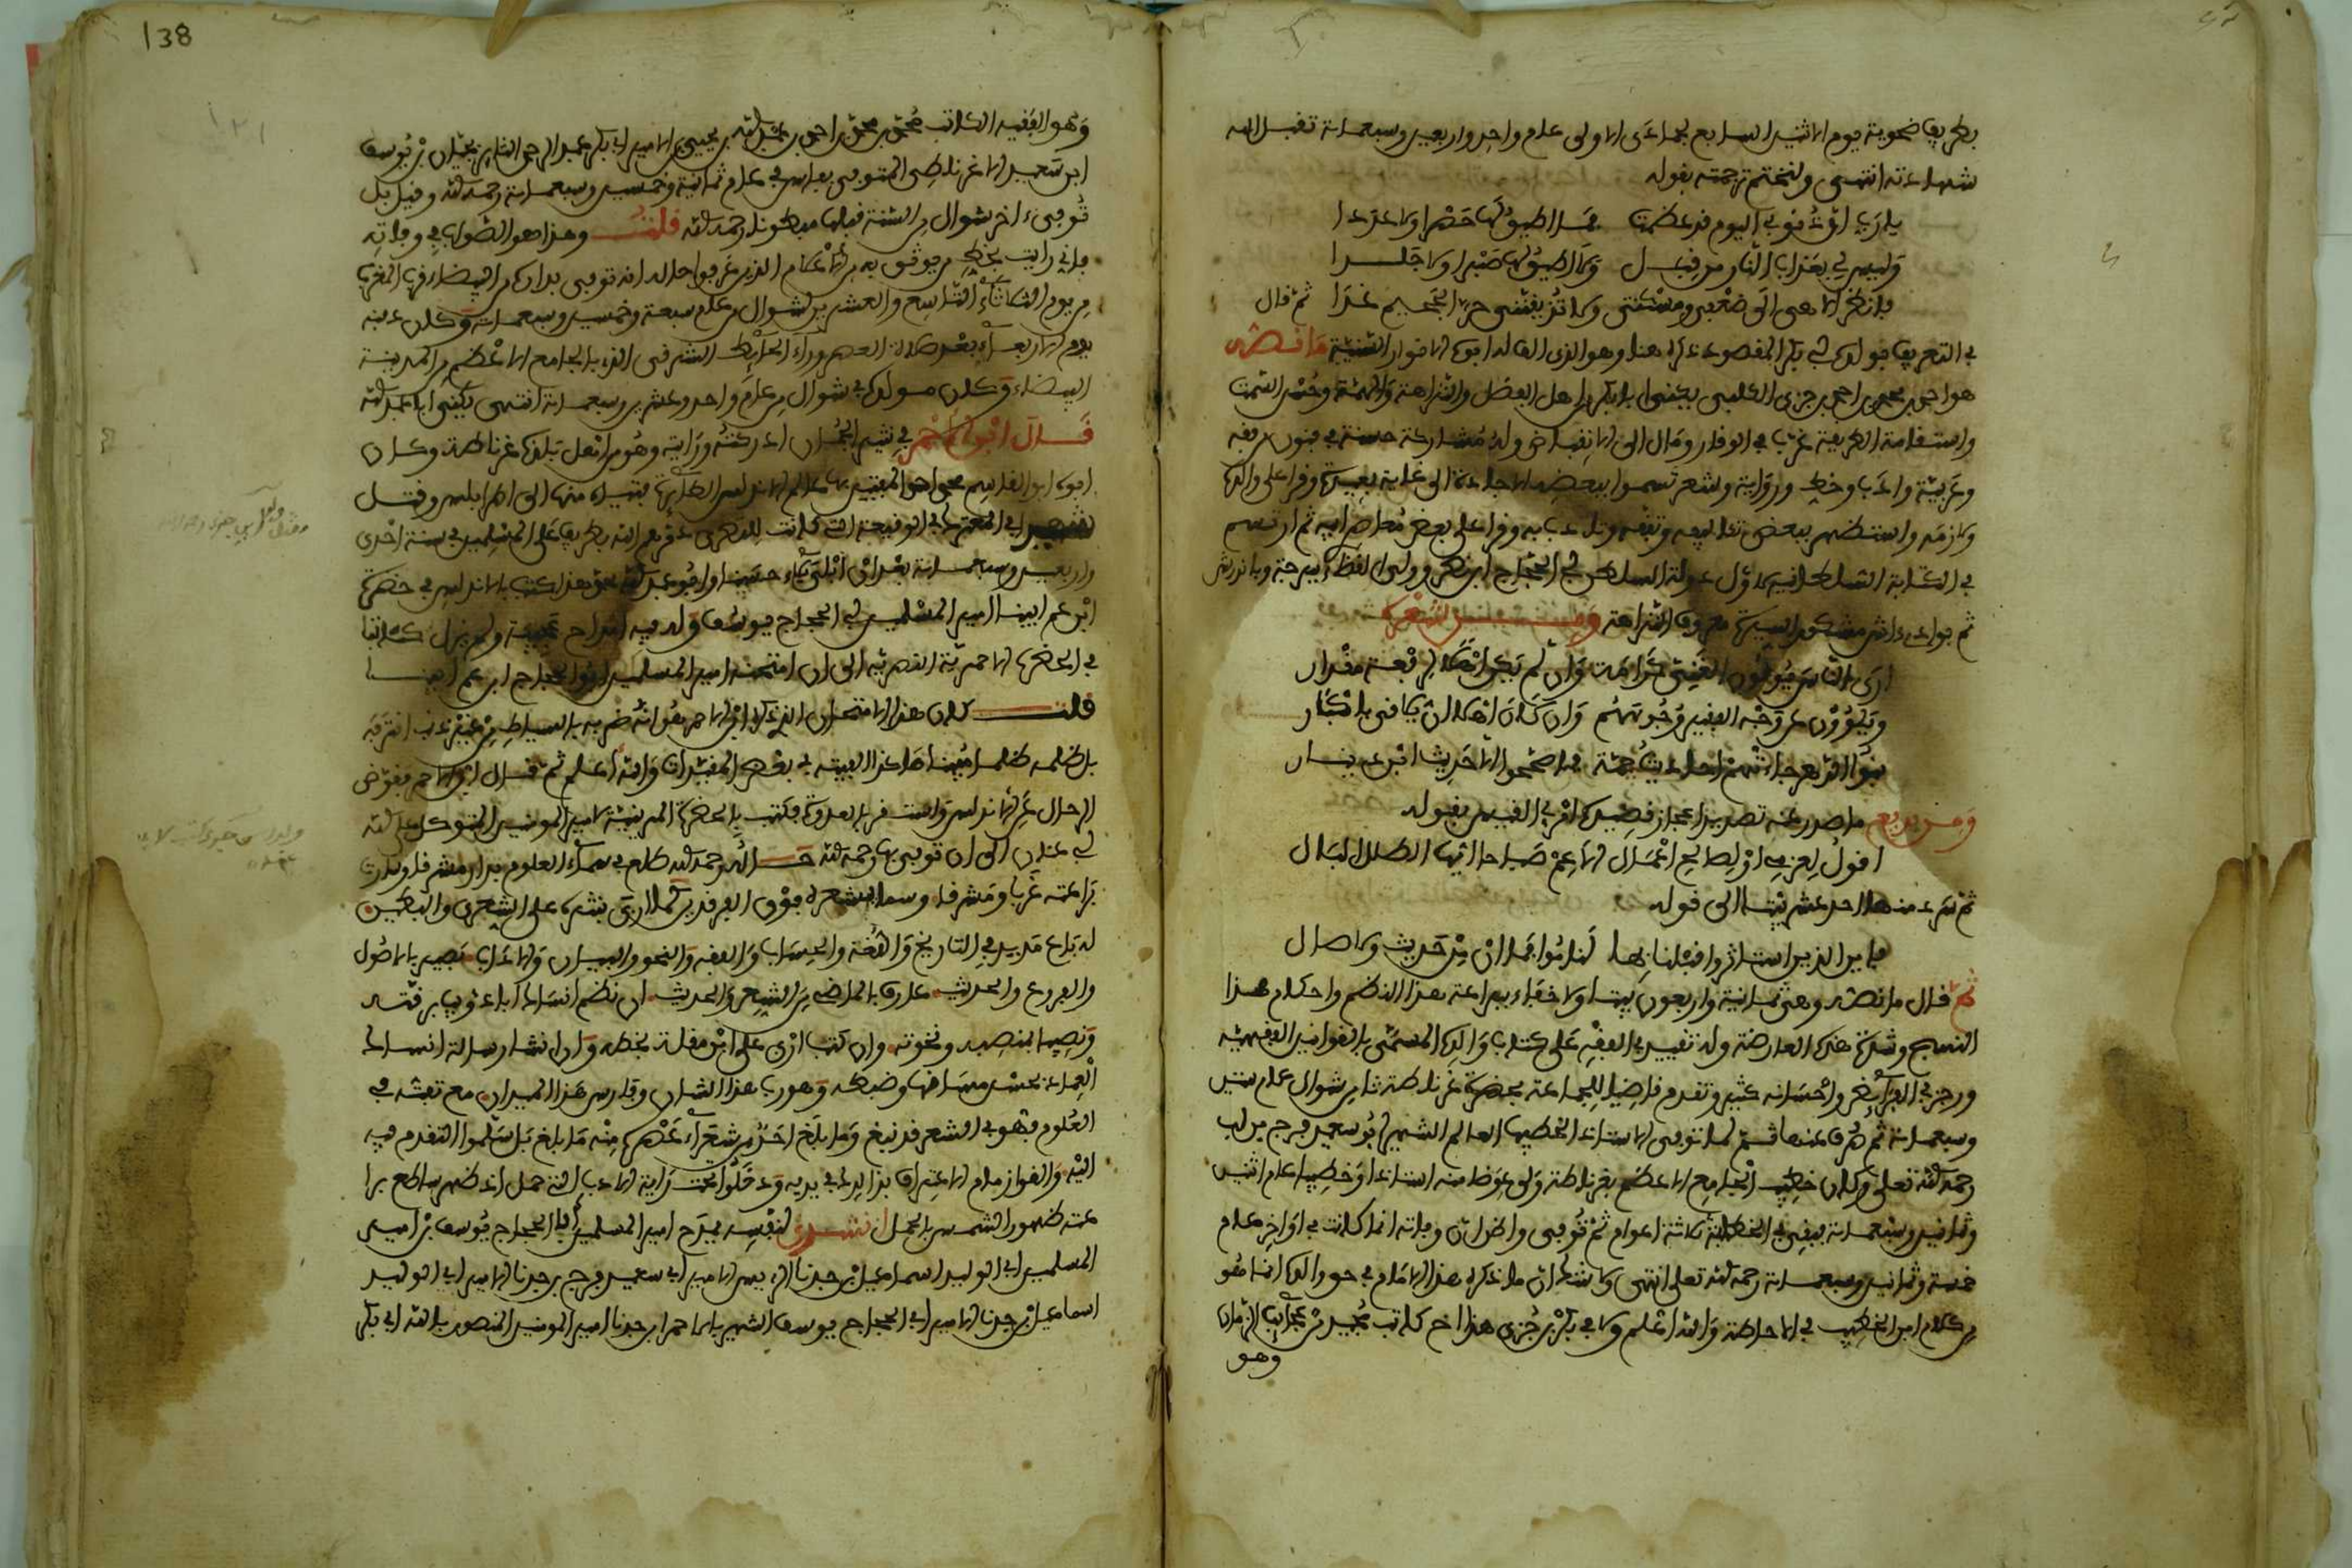 بطريف ضحوة يوم الاثنين السابع لجمادى الاولى عام واحد واربعين وسبعمائة تقبل الله
شهادته انتهى ولنختم ترجمته بقوله
يا رب ان ذنوبي اليوم قد عظمت فما اطيق لها حصرا ولا عددا
وليس لي بعذاب النار من قبل ولا اطيق لها صبرا ولا جلدا
فانظر الاهي الى ضعفي ومسكنتي ولا تذيقنني حر الجحيم غدا ثم قال
في التعريف بولده ابي بكر المقصود ذكره هنا وهو الذي الف له ابوه الانوار السنية ما نصه
هو احمد بن محمد بن احمد بن جزي الكلبي يكنى ابا بكر من اهل الفضل والنزاهة والهمة وحسن السمت
واستقامة الطريقة غرب في الوقار ومال الى الانقباض وله مشاركة حسنة في فنون من فقه
وعربية وادب وخط ورواية وشعر تسموا ببعضه الاجادة الى غاية بعيدة وقرا على والده
ولازمه واستظهر ببعض تئاليفه وتفقه وتادب به وقرا على بعض معاصر ابيه ثم ارتسم
في الكتابة السلطانية لاول دولة السلطان ابي الحجاج ابن نصر وولي القضاء ببرجة وباندرش
ثم بوادي اش مشكور السيرة معروف النزاهة ومن شعره
ارى الناس يولون الغني كرامة وان لم يكن اهلا لرفعة مقدار
ويلوون عن وجه الفقير وجوههم وان كان اهلا ان يلاقى باكبار
بنوا الدهر جاءتهم احاديث جمة فما صححوا الا حديث ابن دينار
ومن بديع ما صدر عنه تصدير اعجاز قصيدة امرئ القيس بقوله
اقول لعزمي او لصالح اعمال الا عم صباحا ايها الطلل البال
ثم سرد منها احد عشر بيتا الى قوله
فاين الذين استاثروا قبلنا بها لناموا فما ان من حديث ولا صال
ثم قال ما نصه وهي ثمانية واربعون بيتا ولا خفاء ببراعة هذا النظم واحكام هذا
النسج وشدة هذه العارضة وله تقييد في الفقه على كتاب والده المسمى بالقوانين الفقهية
ورجز في الفرائض واحسانه كثير وتقدم قاضيا للجماعة بحضرة غرناطة ثامن شوال عام ستين
وسبعمائة ثم صرف عنها ثم لما توفي الاستاذ الخطيب العالم الشهير ابو سعيد فرج بن لب
رحمه الله تعلى وكان خطيب الجامع الاعظم بغرناطة ولي عوضا منه استاذا وخطيبا عام اثنين
وثمانين وسبعمائة فبقي في الخطابة ثلاثة اعوام ثم توفي واظن ان وفاته انما كانت في اواخر عام
خمسة وثمانين وسبعمائة رحمه الله تعلى انتهى ولا شك ان ما ذكره هذا الامام في حق والده انما هو
من كلام ابن الخطيب في الاحاطة والله اعلم ولابي بكر بن جزي هذا اخ كاتب مجيد من عجائب الزمان
وهو
138
١٢١
وهو الفقيه الكاتب محمد بن محمد بن احمد بن عبد الله بن يحيى بن الامير ابي بكر عبد الرحمن الثائر بجيان بن يوسف
ابن سعيد الاغرناطي المتوفى بفاس في عام ثمانية وخمسين وسبعمائة رحمه الله وقيل بل
توفي اخر شوال من السنة قبلها مبطونا رحمه الله قلت وهذا هو الصواب في وفاته
فاني رايت بخط من يوثق به من الاعلام الذين عرفوا حاله انه توفي بداره من البيضاء قرب المغرب
من يوم الثلاثاء التاسع والعشرين لشوال من عام سبعة وخمسين وسبعمائة وكان دفنه
يوم الاربعاء بعد صلاة العصر وراء الحائط الشرقي الذي بالجامع الاعظم من المدينة
البيضاء وكان مولده في شوال من عام واحد وعشرين وسبعمائة انتهى يكنى ابا عبد الله
قال ابو الاحمر في نثير الجمان ادركته ورايته وهو من اهل بلدنا غرناطة وكان
ابوه ابو القاسم محمد احد المفتين بها عالم الاندلس الطائرة فتياه منها الى اطرابلس وقتل
شهيدا في المعترك في الوقيعة التي كانت للنصرى دمرهم الله بطريف على المسلمين في سنة احدى
واربعين وسبعمائة بعد ان ابلى بلاء حسنا وابو عبد الله محمد هذا كتب بالاندلس في حضرة
ابن عم ابينا امير المسلمين ابي الحجاج يوسف وله فيه امداح عجيبة ولم يزل كاتبا
في الحضرة الاحمرية النصرية الى ان امتحنه امير المسلمين ابو الحجاج ابن عم ابينا
قلت كان هذا الامتحان الذي ذكره ابن الاحمر هو انه ضربه بالسياط من غير ذنب اقترفه
بل ظلمه ظلما مبينا هكذا الفيته في بعض المقيدات والله اعلم ثم قال ابن الاحمر فقوض
الرحال عن الاندلس واستقر بالعدوة فكتب بالحضرة المرينية لامير المومنين المتوكل على الله
ابي عنان الى ان توفي بها رحمه الله حاله رحمه الله طلع في سماء العلوم بدرا مشرقا وسارت
براعته غربا ومشرقا وسما بشعره فوق الفرقدين كما اربى بنثره على الشعرى والبطين
له باع مديد في التاريخ واللغة والحساب والفقه والنحو والبيان والاداب بصير بالاصول
والفروع والحديث عارف بالماضي من الشعر والحديث ان نظم انساك ابا ذؤيب برقته
ونصيبا بمنصبه ونخوته وان كتب ازرى على ابن مقلة بخطه وان انشا رسالة انساك
العماد بحسن مساقها وضبطه وهو رب هذا الشان وفارس هذا الميدان مع تفننه في
العلوم فهو في الشعر قد نبغ وما بلغ احد من شعراء عصره منه ما بلغ بل سلموا التقدم فيه
اليه والقوا زمام الاعتراف بذلك في يديه ودخلوا تحت راية الادب التي حمل اذ ظهر ساطع برا
عته ظهور الشمس بالحمل انشدني لنفسه يمدح امير المسلمين ابا الحجاج يوسف بن امير
المسلمين ابي الوليد اسماعيل بن جدنا الرئيس الامير ابي سعيد فرج بن جدنا الامير ابي الوليد
اسماعيل بن جدنا الامير ابي الحجاج يوسف الشهير بالاحمر ابن جدنا امير المومنين المنصور بالله ابي بكر